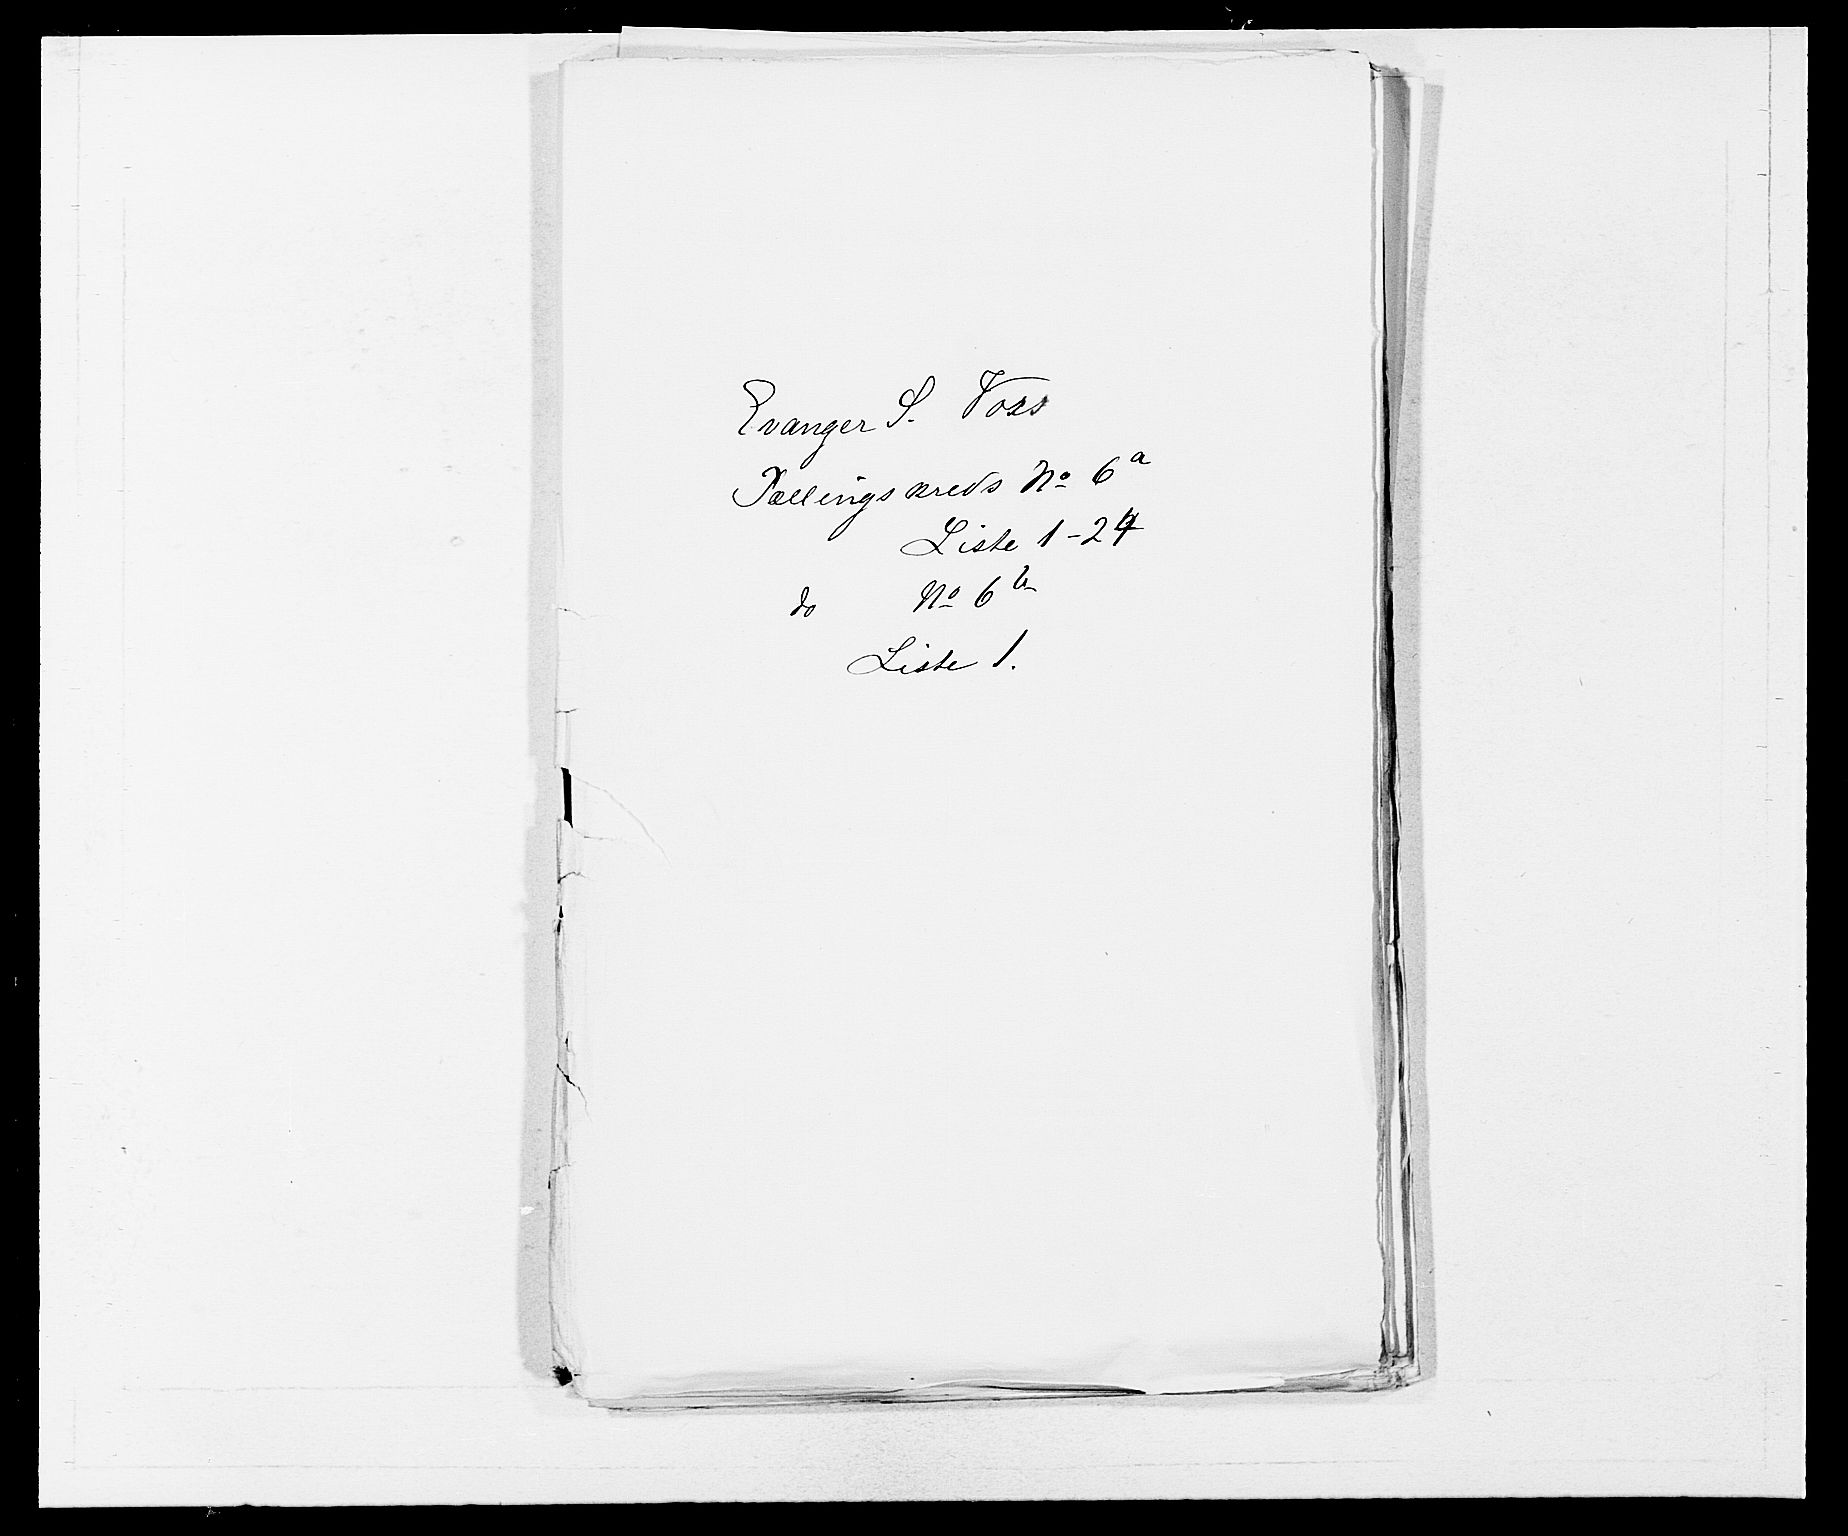 Evanger S. Voss
Tællingskreds No 6a
Liste 1-24
do No 6b
Liste 1.